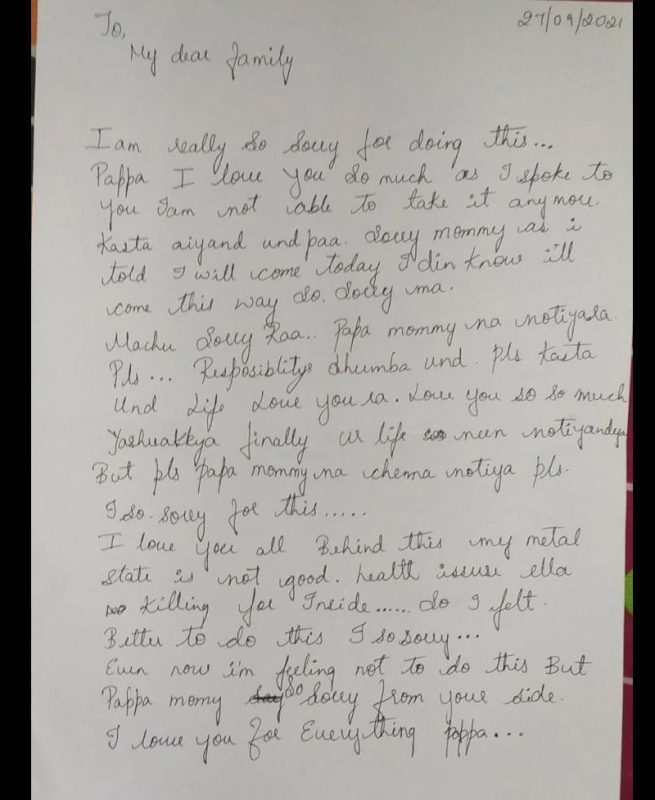 27/09/2021
To,
My dear family
I am really so sorry for doing this...
Pappa I love you so much as I spoke to
you Iam not able to take it anymore.
Kasta aiyand und paa. Sorry mommy as i
told I will come today I din know ill
come this way so. Sorry ma.
Machu Sorry Raa.. Papa mommy na notiyala
Pls... Resposiblitys dhumba und. pls Kasta
Und Life Love you ra. Love you so so much
Yashuakkya finally ur life neen notiyandya
But pls papa mommy na chenna notiya pls.
I so. sorry for this.....
I love you all Behind this my metal
state is not good. healtt issuse ella
killing for Inside...... So I felt.
Better to do this I so sorry...
Even now i'm feeling not to do this But
Pappa momy so Sorry from your side.
I love you for Everything pappa...